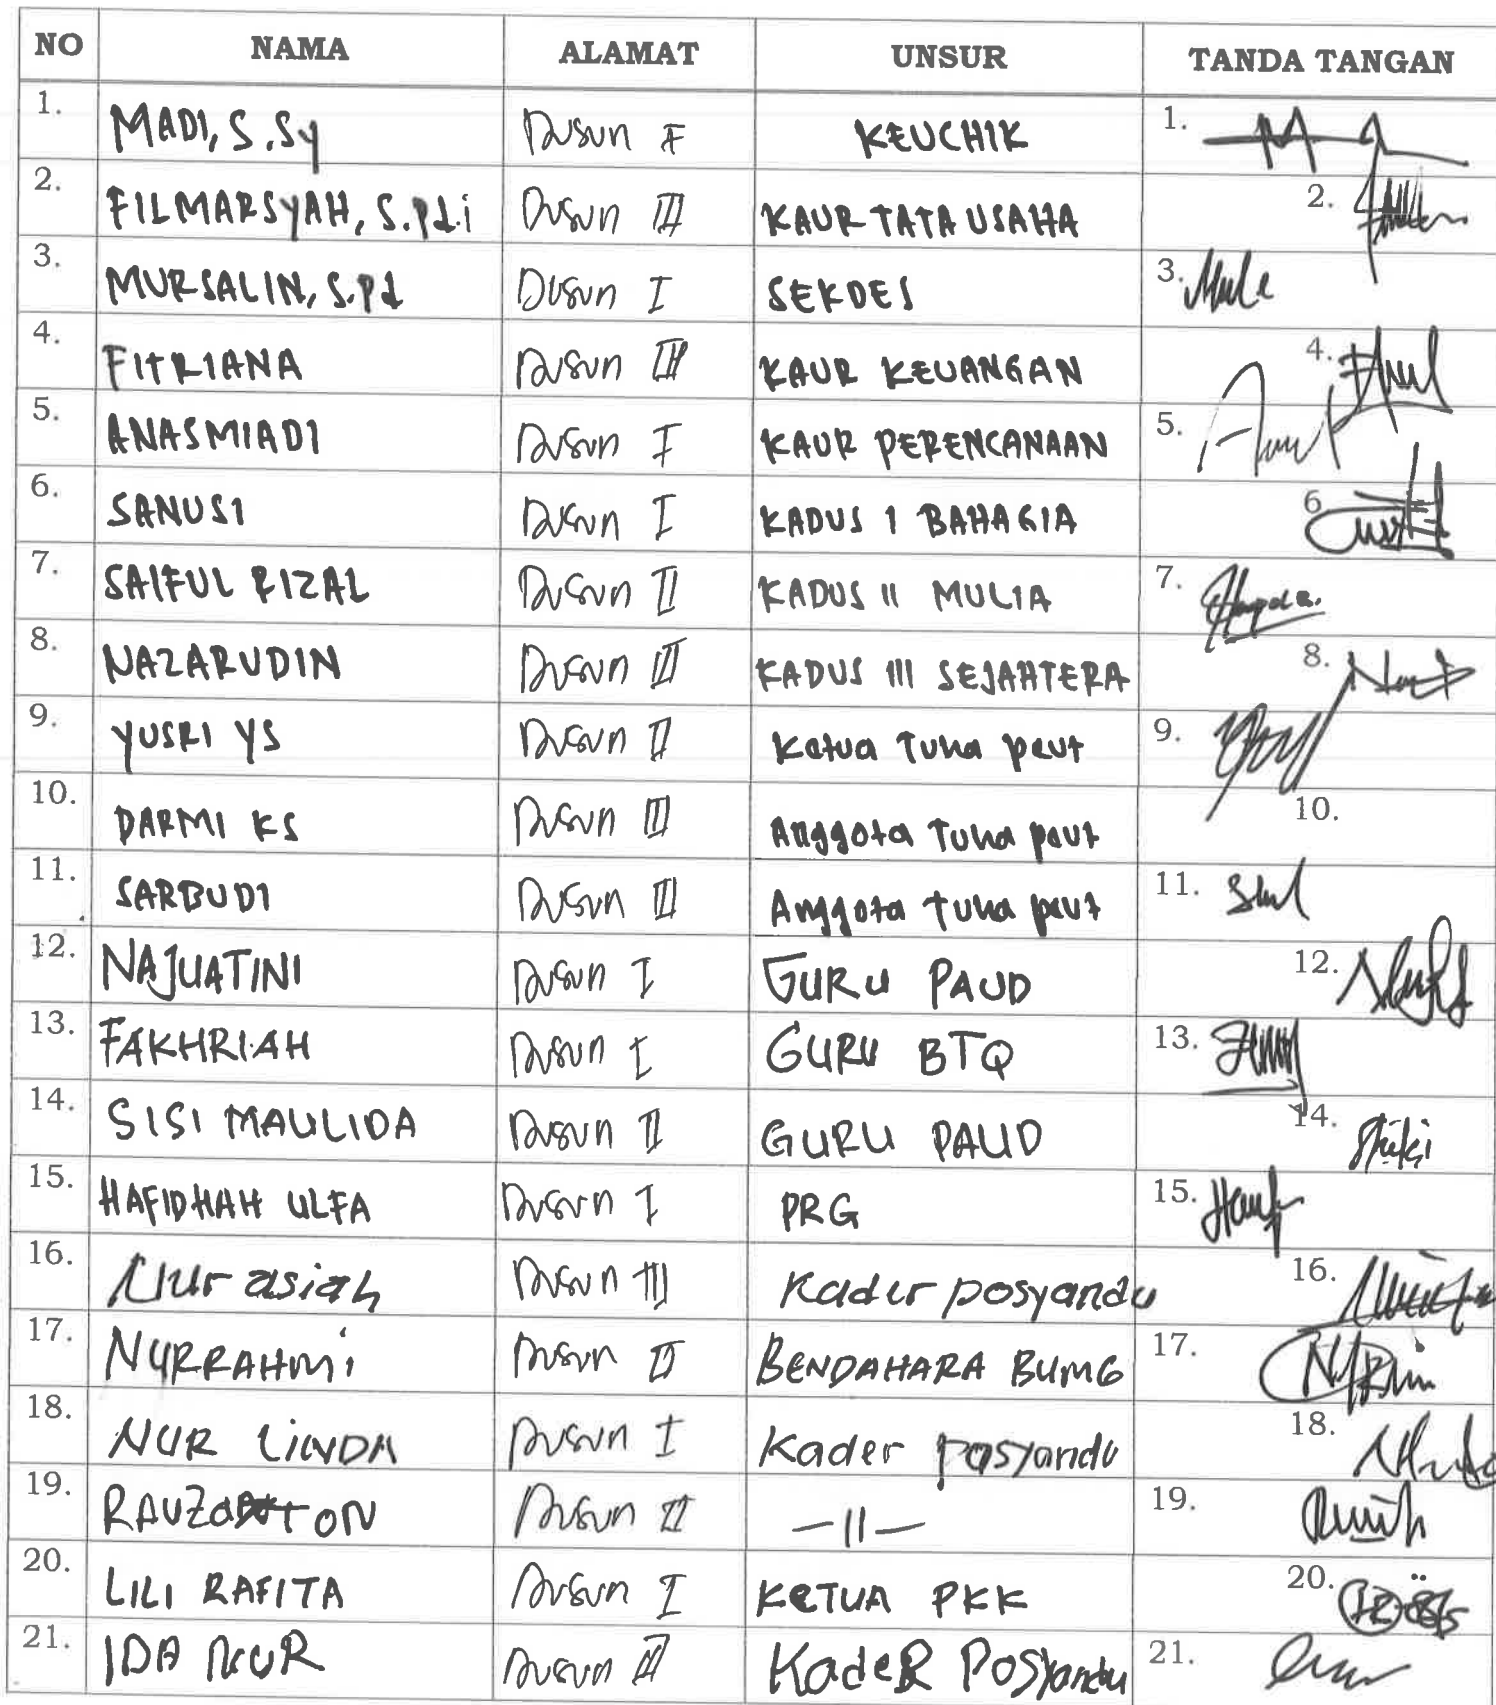 NO NAMA ALAMAT UNSUR TANDA TANGAN
1. MADI, S.Sy Dusun I KEUCHIK 1.
2. FILMARSYAH, S.Pd.i Dusun III KAUR TATA USAHA 2.
3. MURSALIN, S.Pd Dusun I SEKDES 3.
4. FITRIANA Dusun III KAUR KEUANGAN 4.
5. ANASMIADI Dusun I KAUR PERENCANAAN 5.
6. SANUSI Dusun I KADUS 1 BAHAGIA 6
7. SAIFUL RIZAL Dusun II KADUS II MULIA 7.
8. NAZARUDIN Dusun III KADUS III SEJAHTERA 8.
9. YUSRI YS Dusun II Ketua Tuha peut 9.
10. DARMI KS Dusun III Anggota Tuha peut 10.
11. SARBUDI Dusun III Anggota tuha peut 11.
12. NAJUATINI Dusun I GURU PAUD 12.
13. FAKHRIAH Dusun I GURU BTQ 13.
14. SISI MAULIDA Dusun II GURU PAUD 14.
15. HAFIDHAH ULFA Dusun I PRG 15.
16. Nur asiah Dusun III Kader posyandu 16.
17. NURRAHMi Dusun II BENDAHARA BUMG 17.
18. NUR LiNDA Dusun I Kader posyandu 18.
19. Dusun II —11— 19.
20. LILI RAFITA Dusun I KETUA PKK 20.
21. IDA NUR Dusun KadeR Posyandu 21.